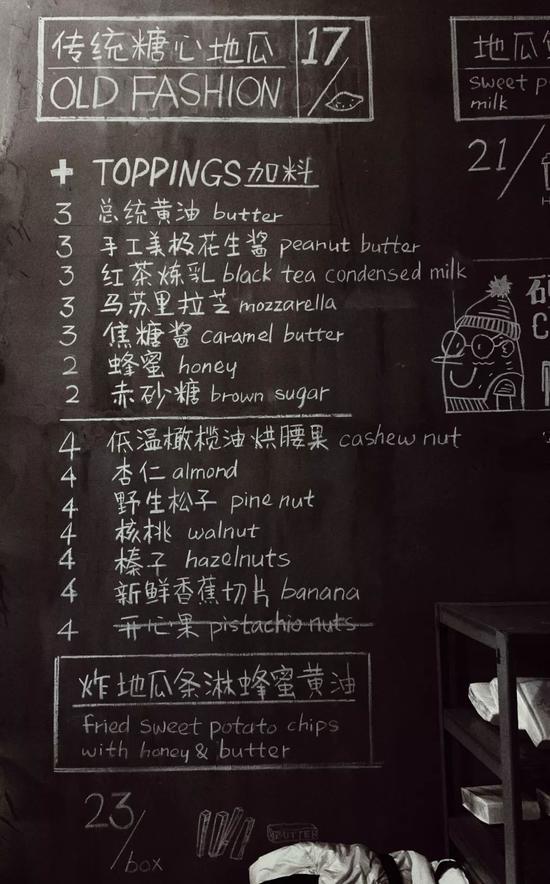 传统糖心地瓜 17/
OLD FASHION
+ TOPPINGS 加料
3 总统黄油 butter
3 手工美极花生酱 peanut butter
3 红茶炼乳 black tea condensed milk
3 马苏里拉芝 mozzarella
3 焦糖酱 caramel butter
2 蜂蜜 honey
2 赤砂糖 brown sugar
4 低温橄榄油烘腰果 cashew nut
4 杏仁 almond
4 野生松子 pine nut
4 核桃 walnut
4 榛子 hazelnuts
4 新鲜香蕉切片 banana
4 开心果 pistachio nuts
炸地瓜条淋蜂蜜黄油
fried sweet potato chips
with honey & butter
23/box
BUTTER
地瓜
sweet p
milk
21/